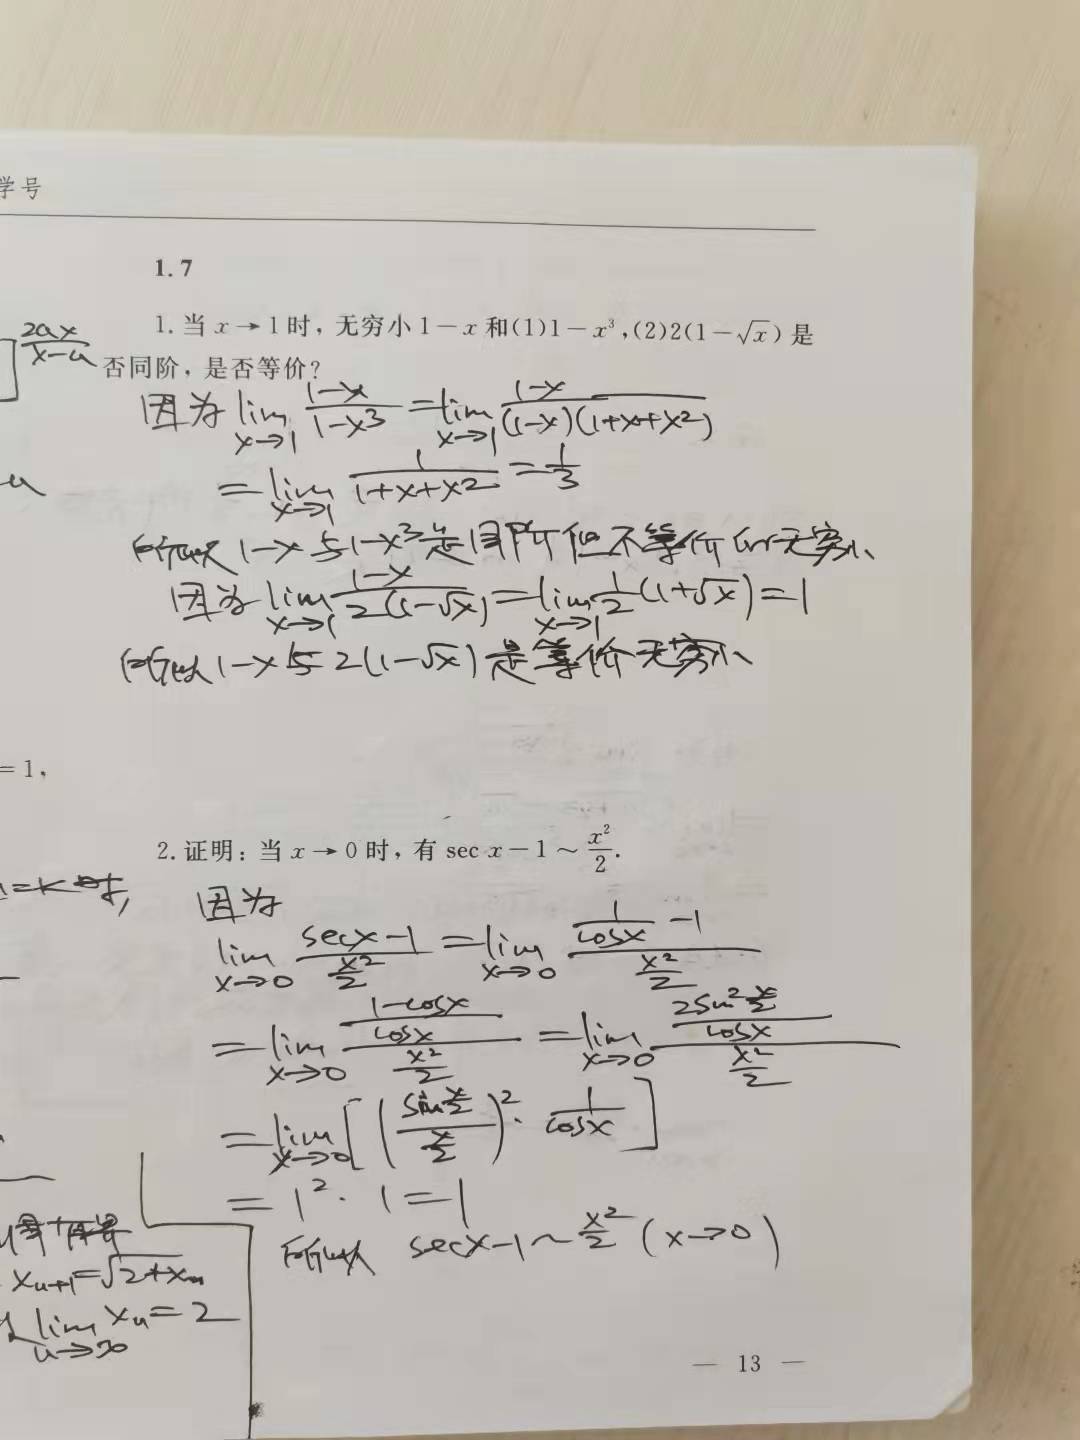 学号
1.7
1. 当 x → 1 时, 无穷小 1 - x 和(1)1 - x³,(2)2(1 - √x) 是
否同阶, 是否等价?
2ax/(x-a)
因为 lim_{x→1} (1-x)/(1-x³) = lim_{x→1} (1-x)/((1-x)(1+x+x²))
= lim_{x→1} 1/(1+x+x²) = 1/3
所以 1-x 与 1-x³ 是同阶但不等价的无穷小
因为 lim_{x→1} (1-x)/(2(1-√x)) = lim_{x→1} 1/2 (1+√x) = 1
所以 1-x 与 2(1-√x) 是等价无穷小
= 1,
2. 证明: 当 x → 0 时, 有 sec x - 1 ~ x²/2.
=k时,
因为
lim_{x→0} (secx-1)/(x²/2) = lim_{x→0} (1/cosx - 1)/(x²/2)
= lim_{x→0} ((1-cosx)/cosx)/(x²/2) = lim_{x→0} (2sin²(x/2)/cosx)/(x²/2)
= lim_{x→0} [(sin(x/2)/(x/2))² · 1/cosx]
= 1² · 1 = 1
所以 secx-1 ~ x²/2 (x→0)
x_{n+1} = √(2+x_n)
lim_{n→∞} x_n = 2
— 13 —